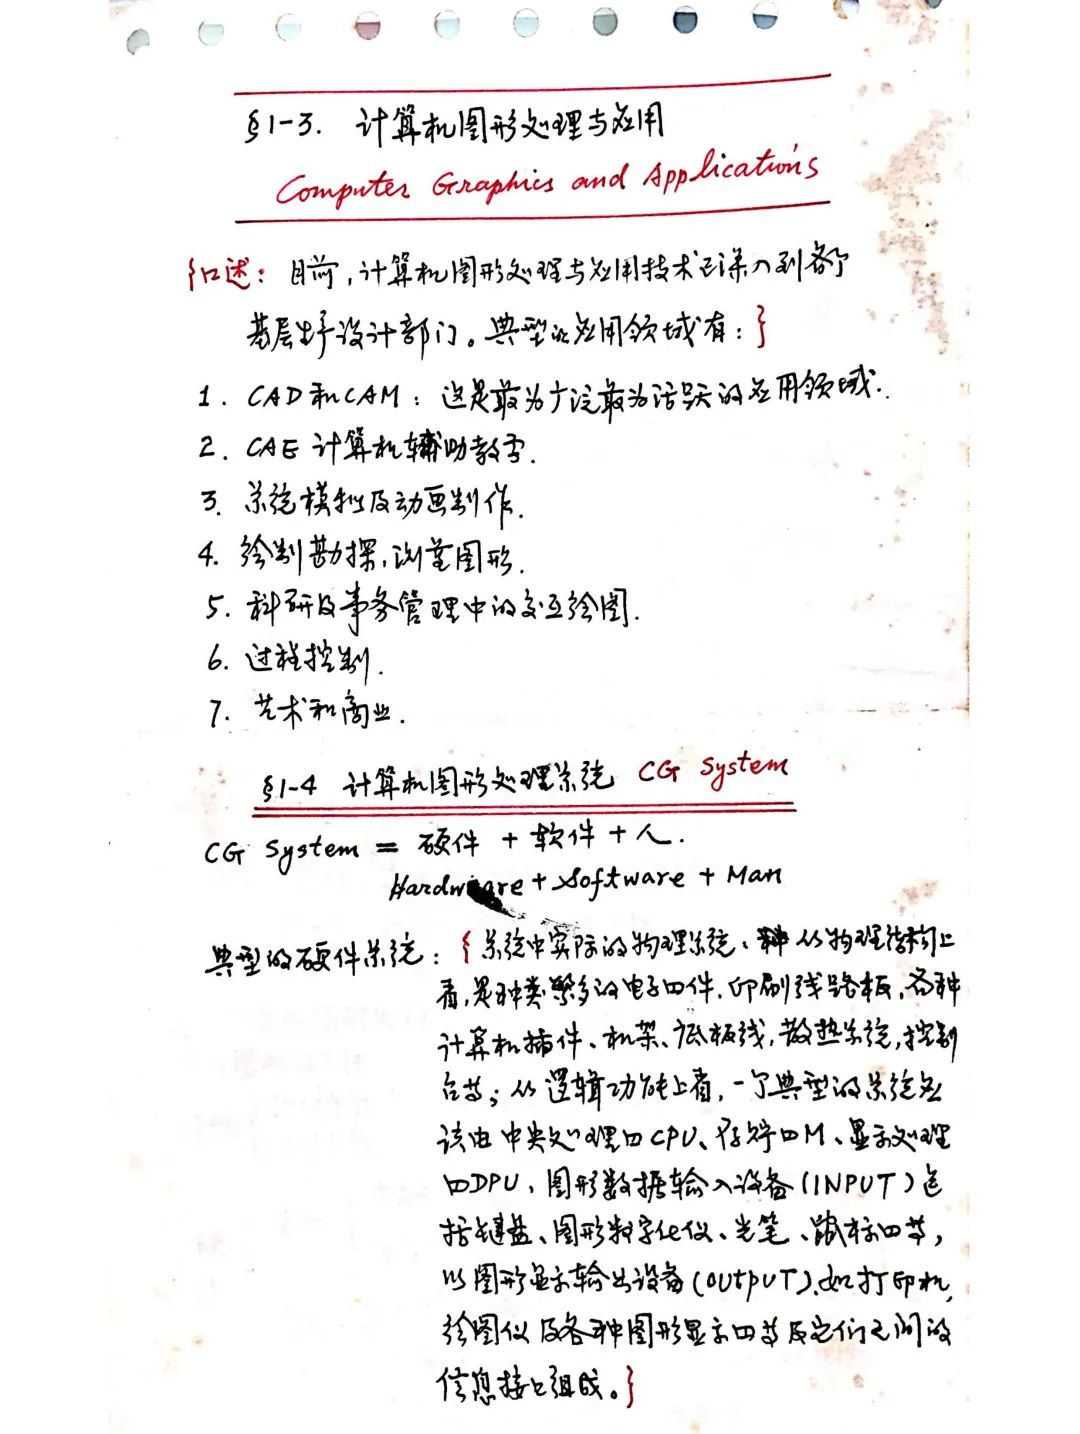 §1-3. 计算机图形处理与应用
Computer Graphics and Applications
{口述：目前，计算机图形处理与应用技术已深入到各个
基层生产设计部门。典型的应用领域有：}
1. CAD和CAM：这是最为广泛最为活跃的应用领域.
2. CAE 计算机辅助教学.
3. 系统模拟及动画制作.
4. 绘制勘探，测量图形.
5. 科研及事务管理中的交互绘图.
6. 过程控制.
7. 艺术和商业.
§1-4 计算机图形处理系统 CG System
CG System = 硬件 + 软件 + 人.
Hardware + Software + Man
典型的硬件系统：{系统中实际的物理系统、从物理结构上
看，是种类繁多的电子口件，印刷线路板，各种
计算机插件、机架、底板线，散热系统，控制
台等；从逻辑功能上看，一个典型的系统应
该由中央处理口CPU、存贮口M、显示处理
口DPU，图形数据输入设备(INPUT)包
括键盘、图形数字化仪、光笔、鼠标口等，
以图形显示输出设备(OUTPUT)，如打印机，
绘图仪及各种图形显示口等及它们之间的
信息接口组成。}